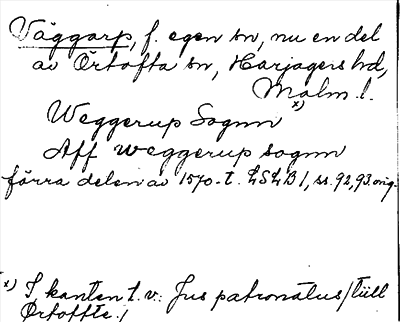 Väggarp, f. egen sn, nu en del
av Örtofta sn, Harjagers hd,
Malm. l.
Weggerup Sognn x)
Aff weggerup sognn
förra delen av 1570-t. LSLB 1, ss. 92, 93. orig.
x) I kanten t. v.: Jus patronatus / till
Ørtoffte /